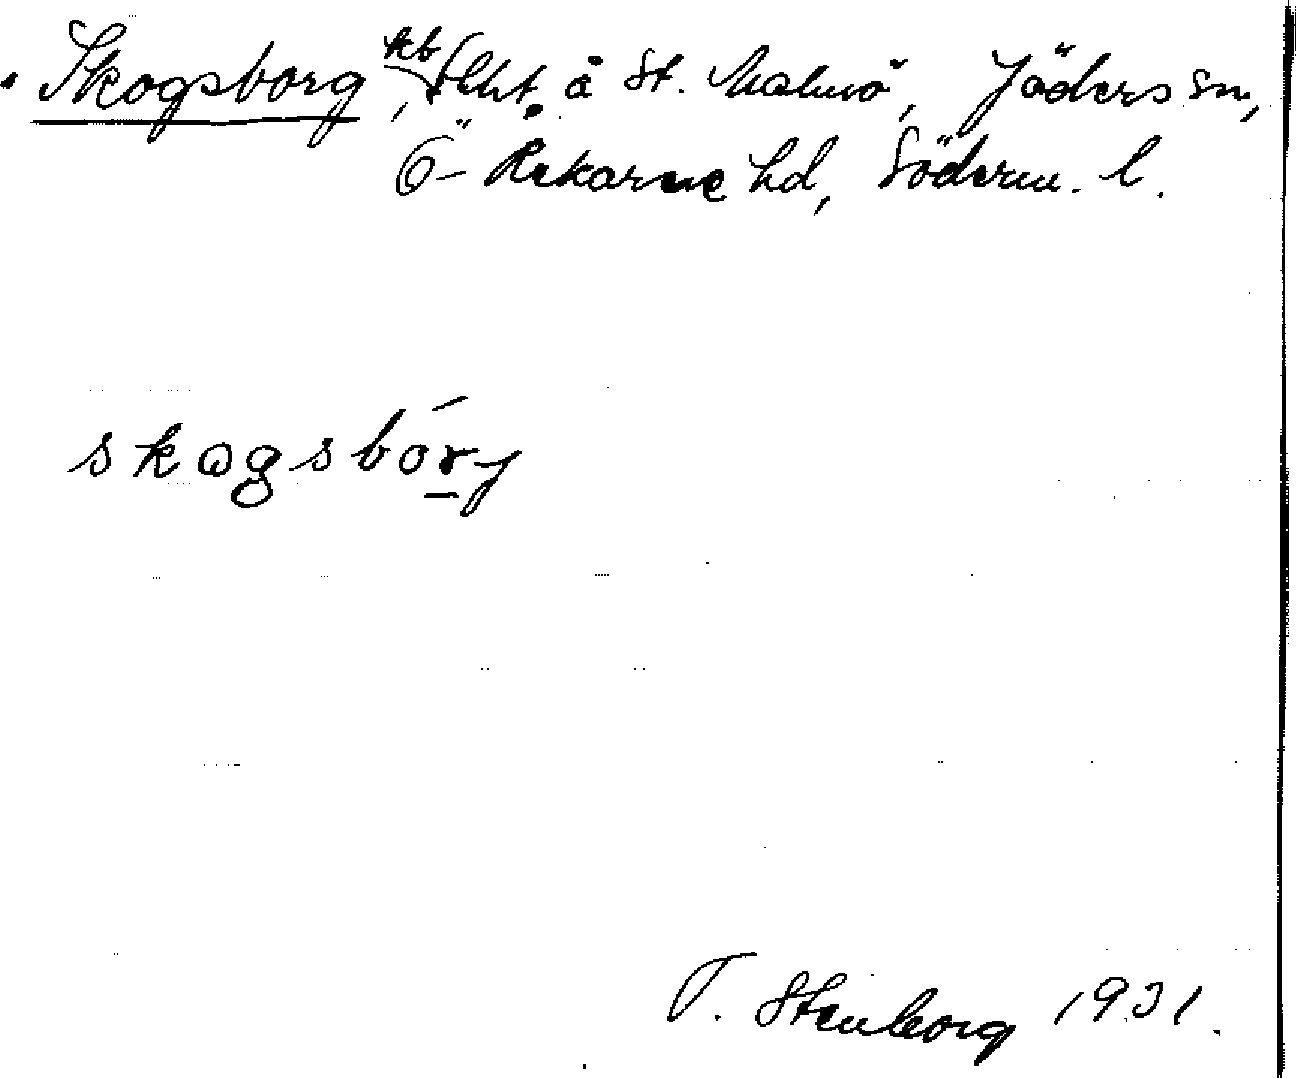 Skogsborg, lht. å St. Malmö, Jäders sn,
Ö-Rekarne hd, Söderm. l.
skogsbórj
T. Stenborg 1931.